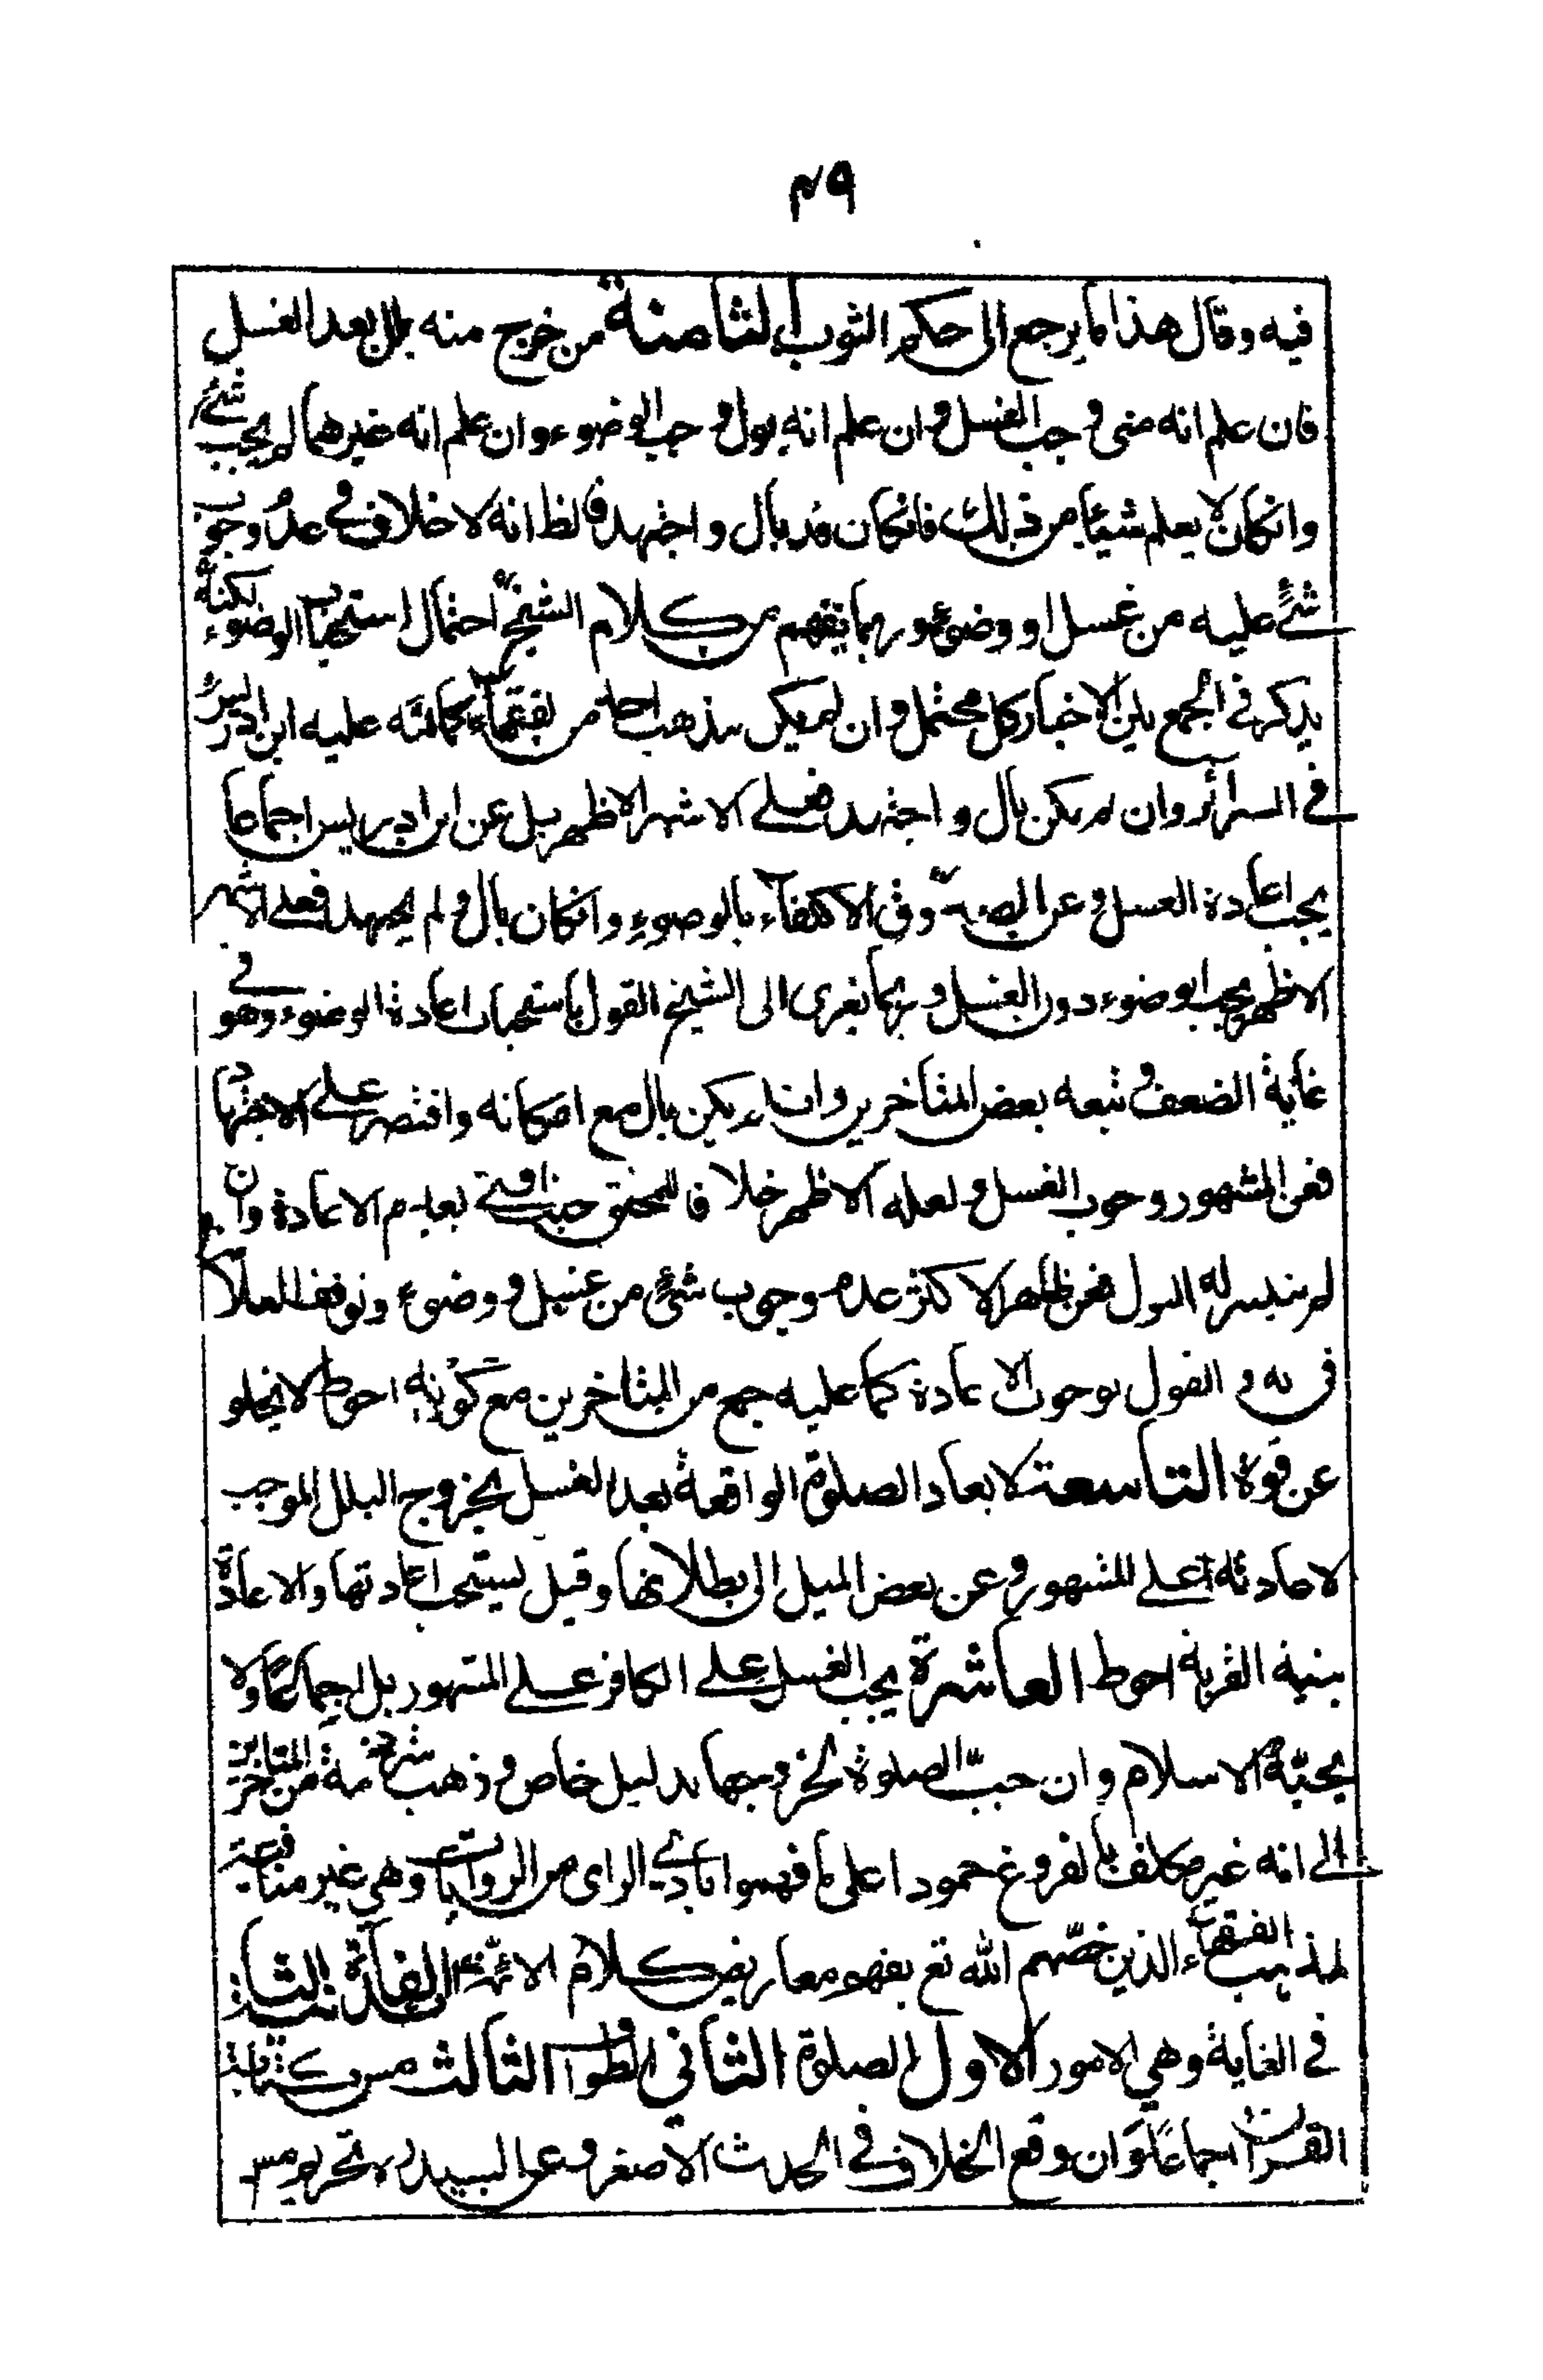 ٤٩
فيه وقال هذا ما يرجع الى حكم الثوب الثامنة من خرج منه بلل بعد الغسل
فان علم انه منى وجب الغسل وان علم انه بول وجب الوضوء وان علم انه غيرهما لم يجب شئ
وانكان لا يعلم شيئا من ذلك فانكان قد بال واجتهد فالظ انه لا خلاف في عدم وجوب
شئ عليه من غسل او وضوء وربما يفهم من كلام الشيخ احتمال استحباب الوضوء لكنه
يذكر في الجمع بين الاخبار كل محتمل وان لم يكن مذهب احد من الفقهاء كما نبه عليه ابن ادريس
في السرائر وان لم يكن بال واجتهد فعلى الاشهر الاظهر بل عن ابن ادريس اجماعا
يجب اعادة الغسل وعن الصدوق الاكتفاء بالوضوء وانكان بال ولم يجتهد فعلى الاشهر
الاظهر يجب الوضوء دون الغسل وربما يعزى الى الشيخ القول باستحباب اعادة الوضوء وهو في
غاية الضعف وتبعه بعض المتأخرين وان لم يكن بال مع امكانه واقتصر على الاجتهاد
فعن المشهور وجوب الغسل ولعله الاظهر خلافا للمحقق حيث افتى بعدم الاعادة وان
لم يتيسر له البول فعن ظاهر الاكثر عدم وجوب شئ من غسل ووضوء وتوقف العلامة
في يه والقول بوجوب الاعادة كما عليه جمع من المتاخرين مع كونه احوط لا يخلو
عن قوة التاسعة لا يعاد الصلوة الواقعة بعد الغسل بخروج البلل الموجب
لاعادته على المشهور وعن بعض الميل الى بطلانها وقيل يستحب اعادتها والاعادة
بنية القربة احوط العاشرة يجب الغسل على الكافر على المشهور بل اجماعا ولا
يجبه الاسلام وان جب الصلوة لخروجها بدليل خاص وذهب شرذمة من المتاخرين
الى انه غير مكلف بالفروع جمودا على ما فهموا بادي الراى من الروايات وهى غير منافية
لمذهب الفقهاء الذين خصهم الله تع بفهم معاريض كلام الائمة الفائدة الثانية
في الغاية وهي الامور الاول الصلوة الثاني الطواف الثالث مس كتابة
القران اجماعا وان وقع الخلاف في الحدث الاصغر وعن السيد ره تحريم مس